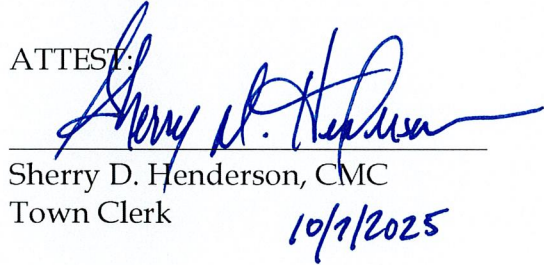 ATTEST:
Sherry D. Henderson
Sherry D. Henderson, CMC
Town Clerk
10/7/2025